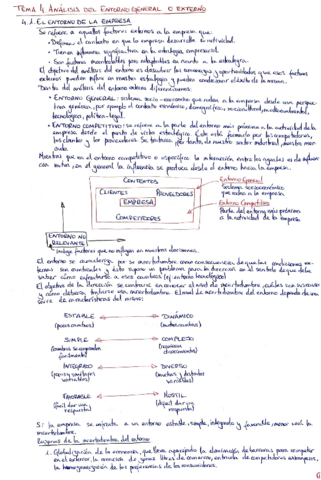 TEMA 4 ANÁLISIS DEL ENTORNO GENERAL O EXTERNO
4.1. EL ENTORNO DE LA EMPRESA
Se refiere a aquellos factores externos a la empresa que:
• Definen el contexto en que la empresa desarrolla su actividad.
• Tienen influencia significativa en la estrategia empresarial.
• Son factores incontrolables
El objetivo del análisis del entorno es descubrir las amenazas y oportunidades que esos factores
externos pueden
Dentro del análisis del entorno externo diferenciamos:
• ENTORNO GENERAL: sistema socio-económico que rodea a la empresa desde una perspec-
tiva genérica, por ejemplo el contexto económico, demográfico, sociocultural, medioambiental,
tecnológico, político-legal.
• ENTORNO COMPETITIVO: se refiere a la parte del entorno más próxima a la actividad de la
empresa desde el punto de vista estratégico. Este está formado por los competidores,
los clientes y los proveedores. Se trata, por tanto, de nuestro sector industrial
Mientras que en el entorno competitivo o específico la interacción entre los agentes es de influen-
cia mutua, en el general la influencia se produce desde el entorno hacia la empresa.
CONTEXTOS
CLIENTES
PROVEEDORES
EMPRESA
COMPETIDORES
Entorno General
Sistema socioeconómico
que rodea a la empresa
Entorno Competitivo
Parte del entorno más próxima
a la actividad de la empresa
ENTORNO NO
RELEVANTE
Incluye factores que no influyen en nuestras decisiones.
El entorno se caracteriza por su incertidumbre como consecuencia de que las condiciones ex-
ternas son cambiantes y esto supone un problema para la dirección en el sentido de que debe
saber cómo enfrentarse a esos cambios (ej entorno tecnológico)
El objetivo de la dirección se centrará en conocer el nivel de incertidumbre
y cómo deberían tratarse esa incertidumbre. El nivel de incertidumbre del entorno depende de una
serie de características del mismo:
ESTABLE
DINÁMICO
(pocos cambios)
(muchos cambios)
SIMPLE
COMPLEJO
INTEGRADO
DIVERSO
(pocas y similares
variables)
(muchas y distintas
variables)
FAVORABLE
HOSTIL
(fácil dar una
respuesta)
(difícil dar una
respuesta)
Si la empresa se enfrenta a un entorno estable, simple, integrado y favorable menor será la
incertidumbre.
Razones de la incertidumbre del entorno
1. Globalización de la economía, que lleva aparejada la eliminación de barreras para competir
en el exterior, la creación de zonas libres de comercio, entrada de competidores extranjeros,
la homogeneización de las preferencias de los consumidores.